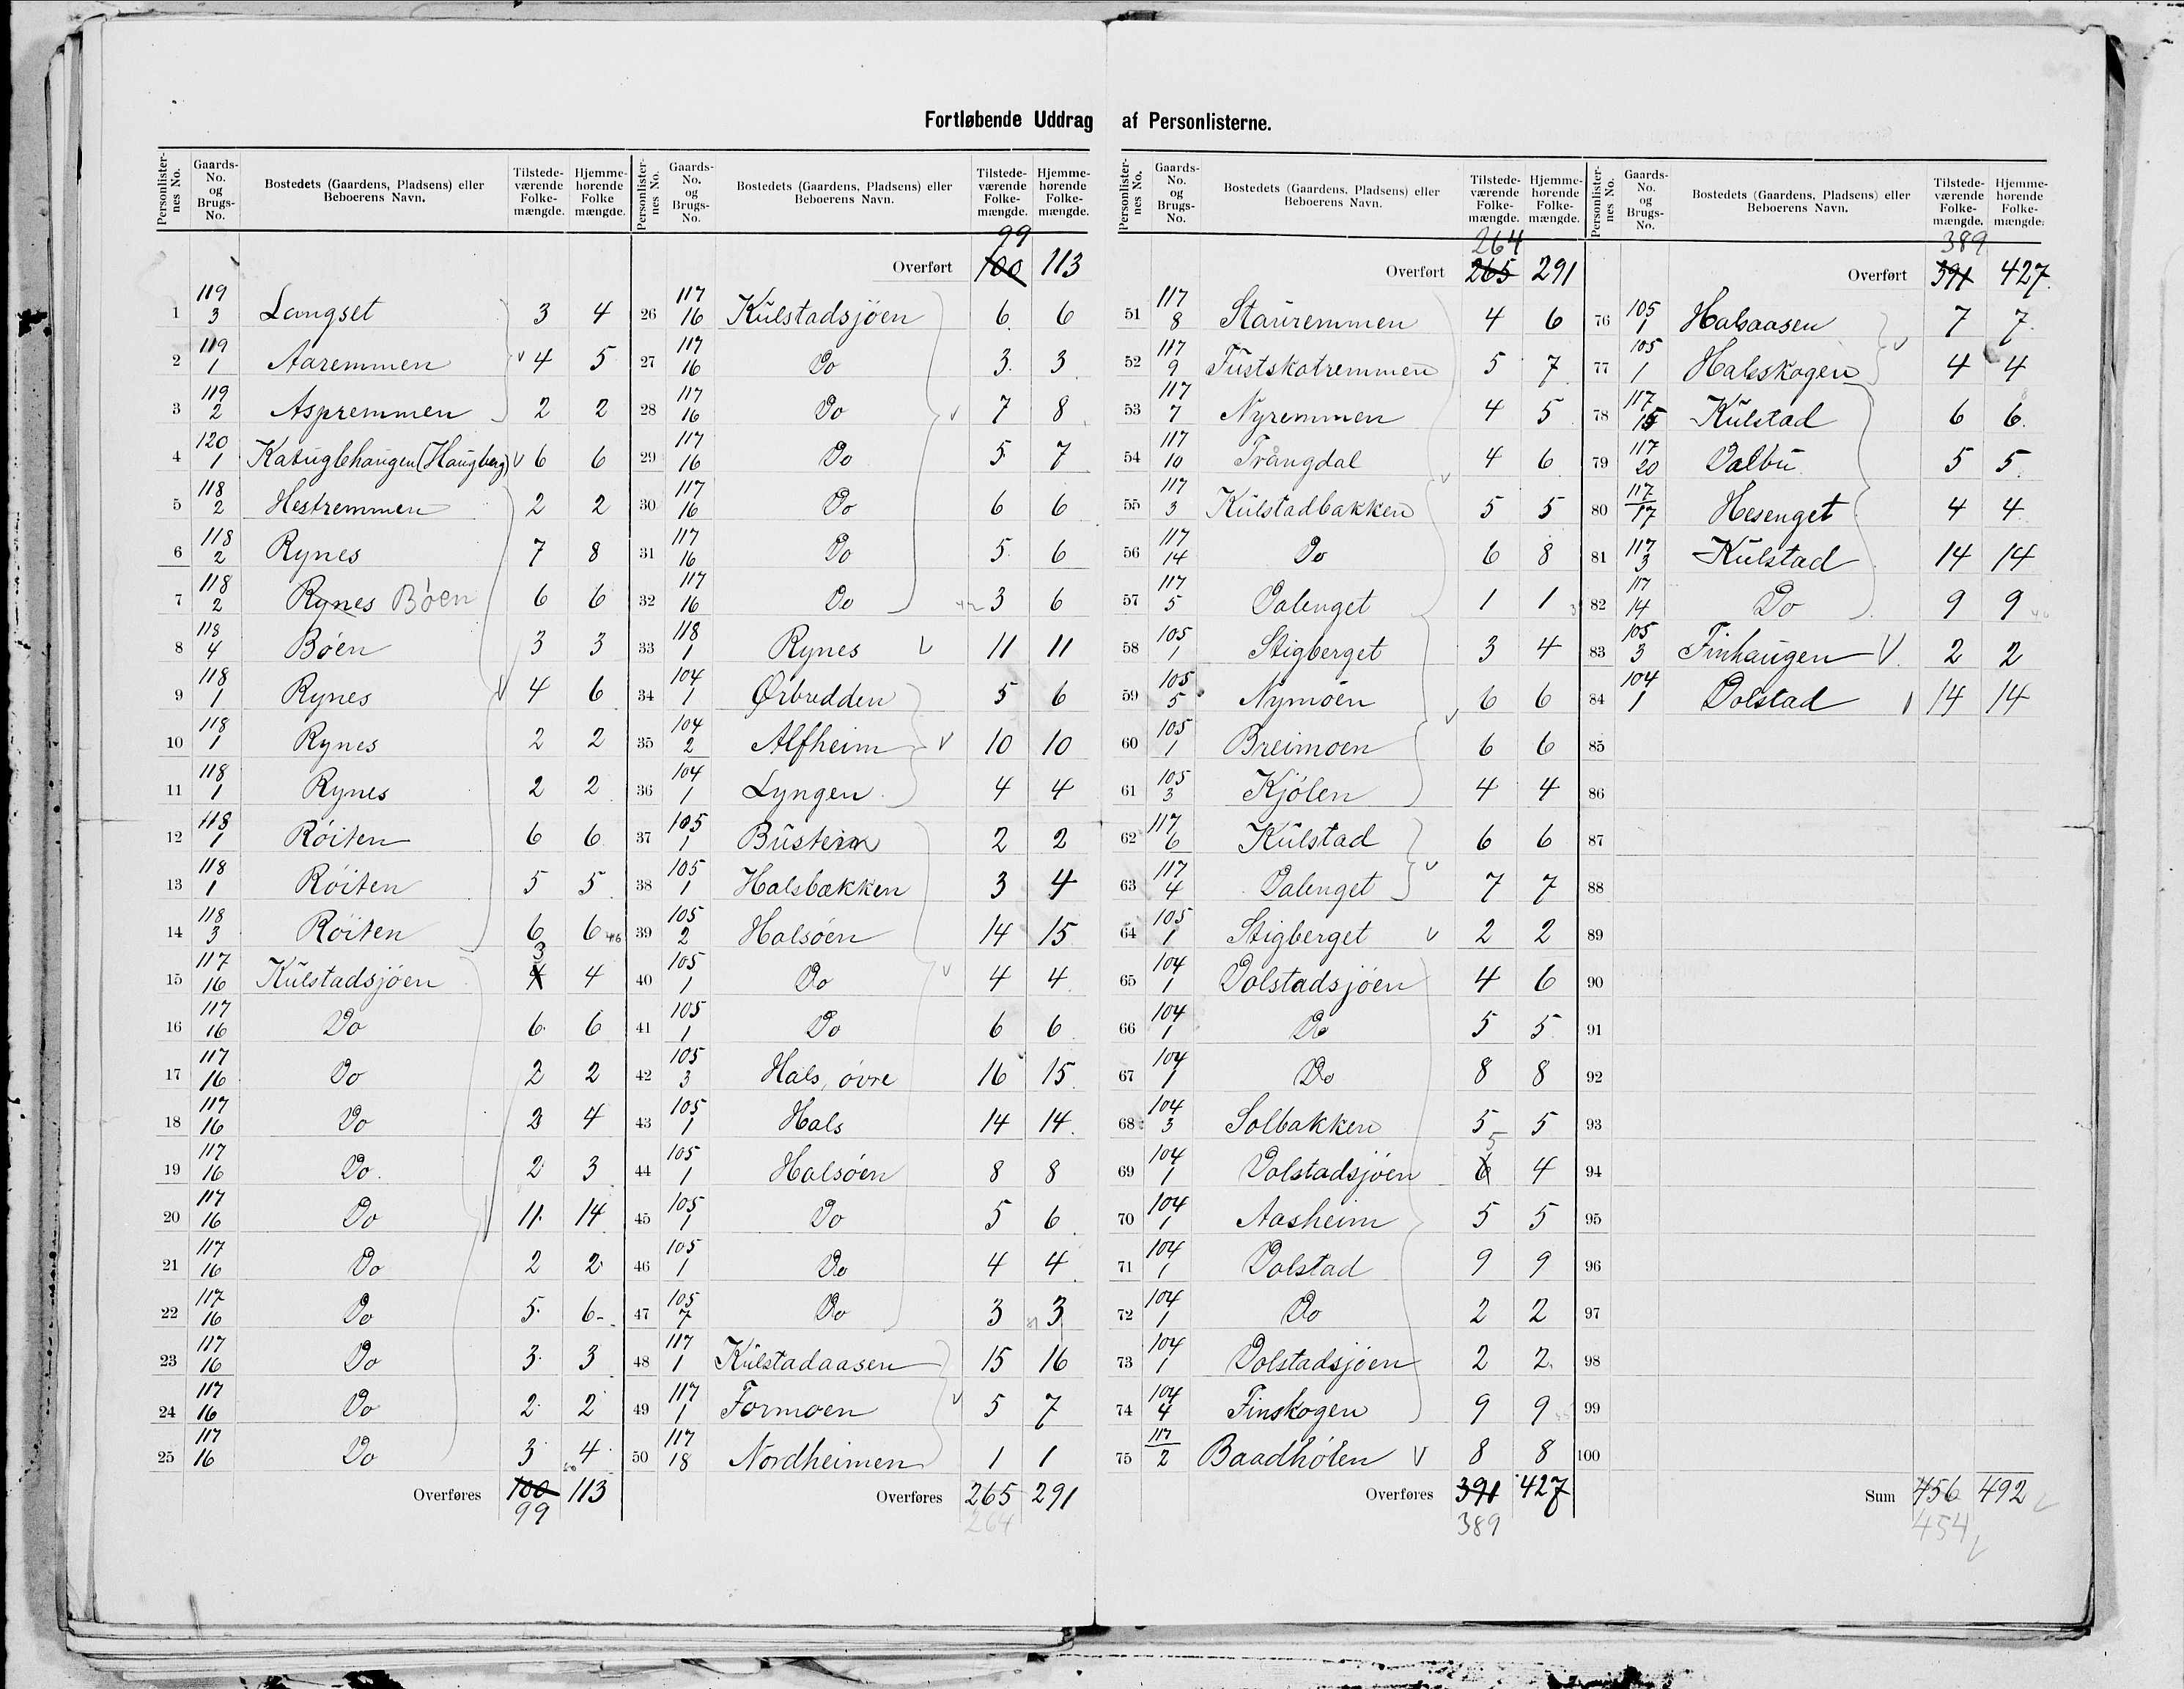 Fortløbende Uddrag af Personlisterne.
Personlisternes No. | Gaards-No. og Brugs-No. | Bostedets (Gaardens, Pladsens) eller Beboerens Navn. | Tilstedeværende Folkemængde. | Hjemmehørende Folkemængde.
1 119/3 Langset 3 4
2 119/1 Aaremmen v 4 5
3 119/2 Aspremmen 2 2
4 120/1 Katuglehaugen (Haugberg) v 6 6
5 118/2 Hestremmen 2 2
6 118/2 Rynes 7 8
7 118/2 Rynes Bøen 6 6
8 118/4 Bøen 3 3
9 118/1 Rynes v 4 6
10 118/1 Rynes 2 2
11 118/1 Rynes 2 2
12 118/1 Røiten 6 6
13 118/1 Røiten 5 5
14 118/3 Røiten 6 6 46
15 117/16 Kulstadsjøen 4 3 4
16 117/16 Do 6 6
17 117/16 Do 2 2
18 117/16 Do 2 4
19 117/16 Do. 2 3
20 117/16 Do v 11 14
21 117/16 Do 2 2
22 117/16 Do 5 6
23 117/16 Do 3 3
24 117/16 Do 2 2
25 117/16 Do 3 4
Overføres 100 113
99
99
Overført 100 113
26 117/16 Kulstadsjøen 6 6
27 117/16 Do 3 3
28 117/16 Do v 7 8
29 117/16 Do 5 7
30 117/16 Do 6 6
31 117/16 Do 5 6
32 117/16 Do 3 6
33 118/1 Rynes v 11 11
34 104/1 Ørbredden 5 6
35 104/2 Alfheim v 10 10
36 104/1 Lyngen 4 4
37 105/1 Busteim 2 2
38 105/1 Halsbækken 3 4
39 105/2 Halsøen 14 15
40 105/1 Do v 4 4
41 105/1 Do 6 6
42 105/3 Hals, øvre 16 15
43 105/1 Hals 14 14
44 105/1 Halsøen 8 8
45 105/1 Do 5 6
46 105/1 Do 4 4
47 105/7 Do 3 3
48 117/1 Kulstadaasen 15 16
49 117/1 Formoen v 5 7
50 117/18 Nordheimen 1 1
Overføres 265 291
264
264
Overført 265 291
51 117/8 Stauremmen 4 6
52 117/9 Tustskatremmen 5 7
53 117/7 Nyremmen 4 5
54 117/10 Trångdal 4 6
55 117/3 Kulstadbakken 5 5
56 117/14 Do 6 8
57 117/5 Dalenget 1 1
58 105/1 Stigberget 3 4
59 105/5 Nymoen 6 6
60 105/1 Breimoen 6 6
61 105/3 Kjølen 4 4
62 117/6 Kulstad 6 6
63 117/4 Dalenget v 7 7
64 105/1 Stigberget v 2 2
65 104/1 Dolstadsjøen 4 6
66 104/1 Do 5 5
67 104/1 Do 8 8
68 104/3 Solbakken 5 5
69 104/1 Dolstadsjøen 6 5 4
70 104/1 Aasheim 5 5
71 104/1 Dolstad 9 9
72 104/1 Do 2 2
73 104/1 Dolstadsjøen 2 2
74 104/4 Finskogen 9 9
75 117/2 Baadhølen v 8 8
Overføres 391 427
389
389
Overført 391 427
76 105/1 Halsaasen 7 7
77 105/1 Halsskogen 4 4
78 117/15 Kulstad 6 6
79 117/20 Dalbu 5 5
80 117/17 Hesenget 4 4
81 117/3 Kulstad 14 14
82 117/14 Do 9 9
83 105/3 Finhaugen v 2 2
84 104/1 Dolstad 14 14
85
86
87
88
89
90
91
92
93
94
95
96
97
98
99
100
Sum 456 492
454